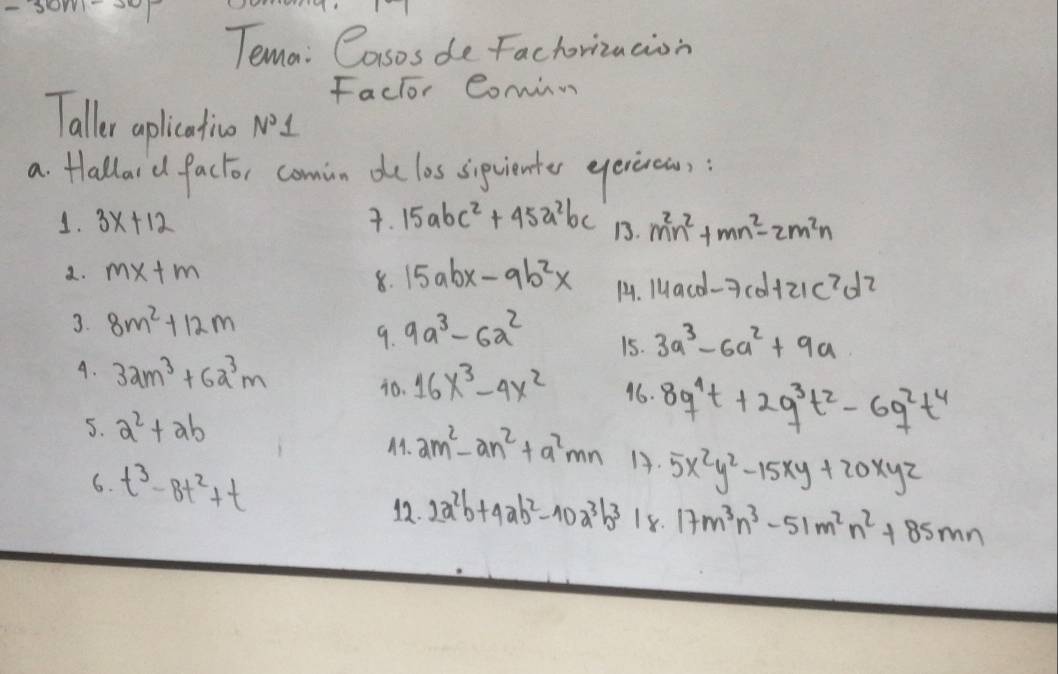 Tema: Casos de Factorización
Factor Común
Taller aplicativo N°1
a. Hallar el factor común de los siguientes ejercicios:
1. 3x+12
2. mx+m
3. 8m²+12m
4. 3am³+6a³m
5. a²+ab
6. t³-8t²+t
7. 15abc²+45a²bc
8. 15abx-9b²x
9. 9a³-6a²
10. 16x³-4x²
11. am²-an²+a²mn
12. 2a²b+4ab²-10a³b³
13. m²n²+mn²-2m²n
14. 14acd-7cd+21c²d²
15. 3a³-6a²+9a
16. 8q⁴t+2q³t²-6q²t⁴
17. 5x²y²-15xy+20xyz
18. 17m³n³-51m²n²+85mn